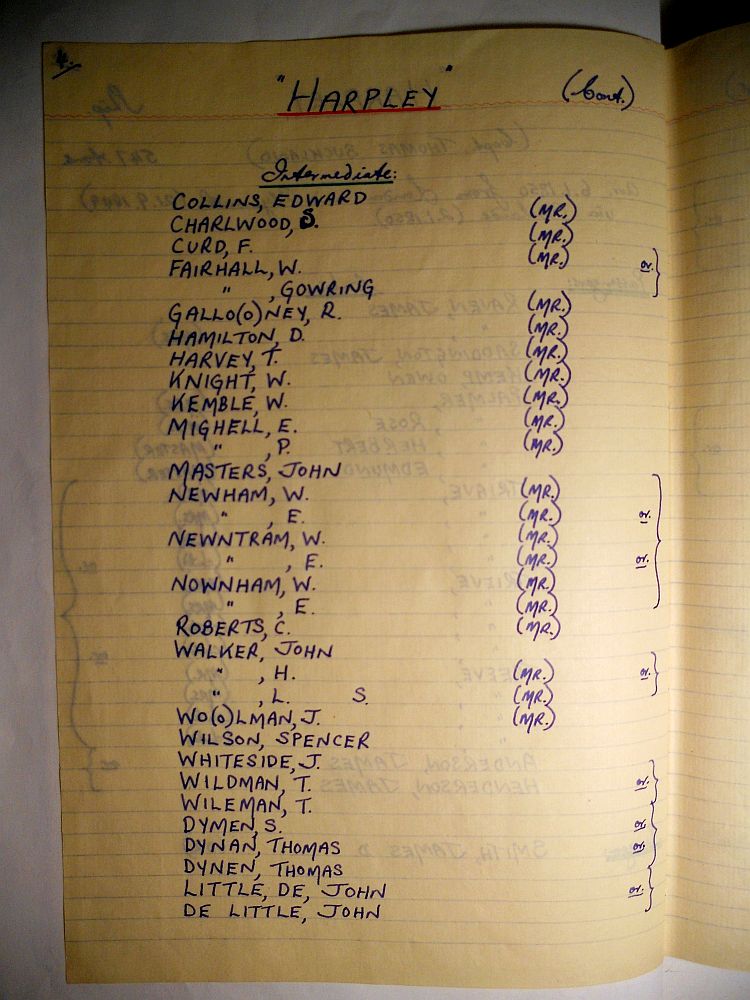 4.
"HARPLEY" (Cont.)
Intermediate:
COLLINS, EDWARD
CHARLWOOD, S. (MR.)
CURD, F. (MR.)
FAIRHALL, W. (MR.) or.
" , GOWRING
GALLO(O)NEY, R. (MR.)
HAMILTON, D. (MR.)
HARVEY, T. (MR.)
KNIGHT, W. (MR.)
KEMBLE, W. (MR.)
MIGHELL, E. (MR.)
" , P. (MR.)
MASTERS, JOHN
NEWHAM, W. (MR.)
" , E. (MR.) or.
NEWNTRAM, W. (MR.)
" , E. (MR.) or.
NOWNHAM, W. (MR.)
" , E. (MR.)
ROBERTS, C. (MR.)
WALKER, JOHN
" , H. (MR.) or.
" , L. S. (MR.)
WO(O)LMAN, J. (MR.)
WILSON, SPENCER
WHITESIDE, J.
WILDMAN, T. or.
WILEMAN, T.
DYMEN, S. or.
DYNAN, THOMAS or.
DYNEN, THOMAS
LITTLE, DE, JOHN or.
DE LITTLE, JOHN